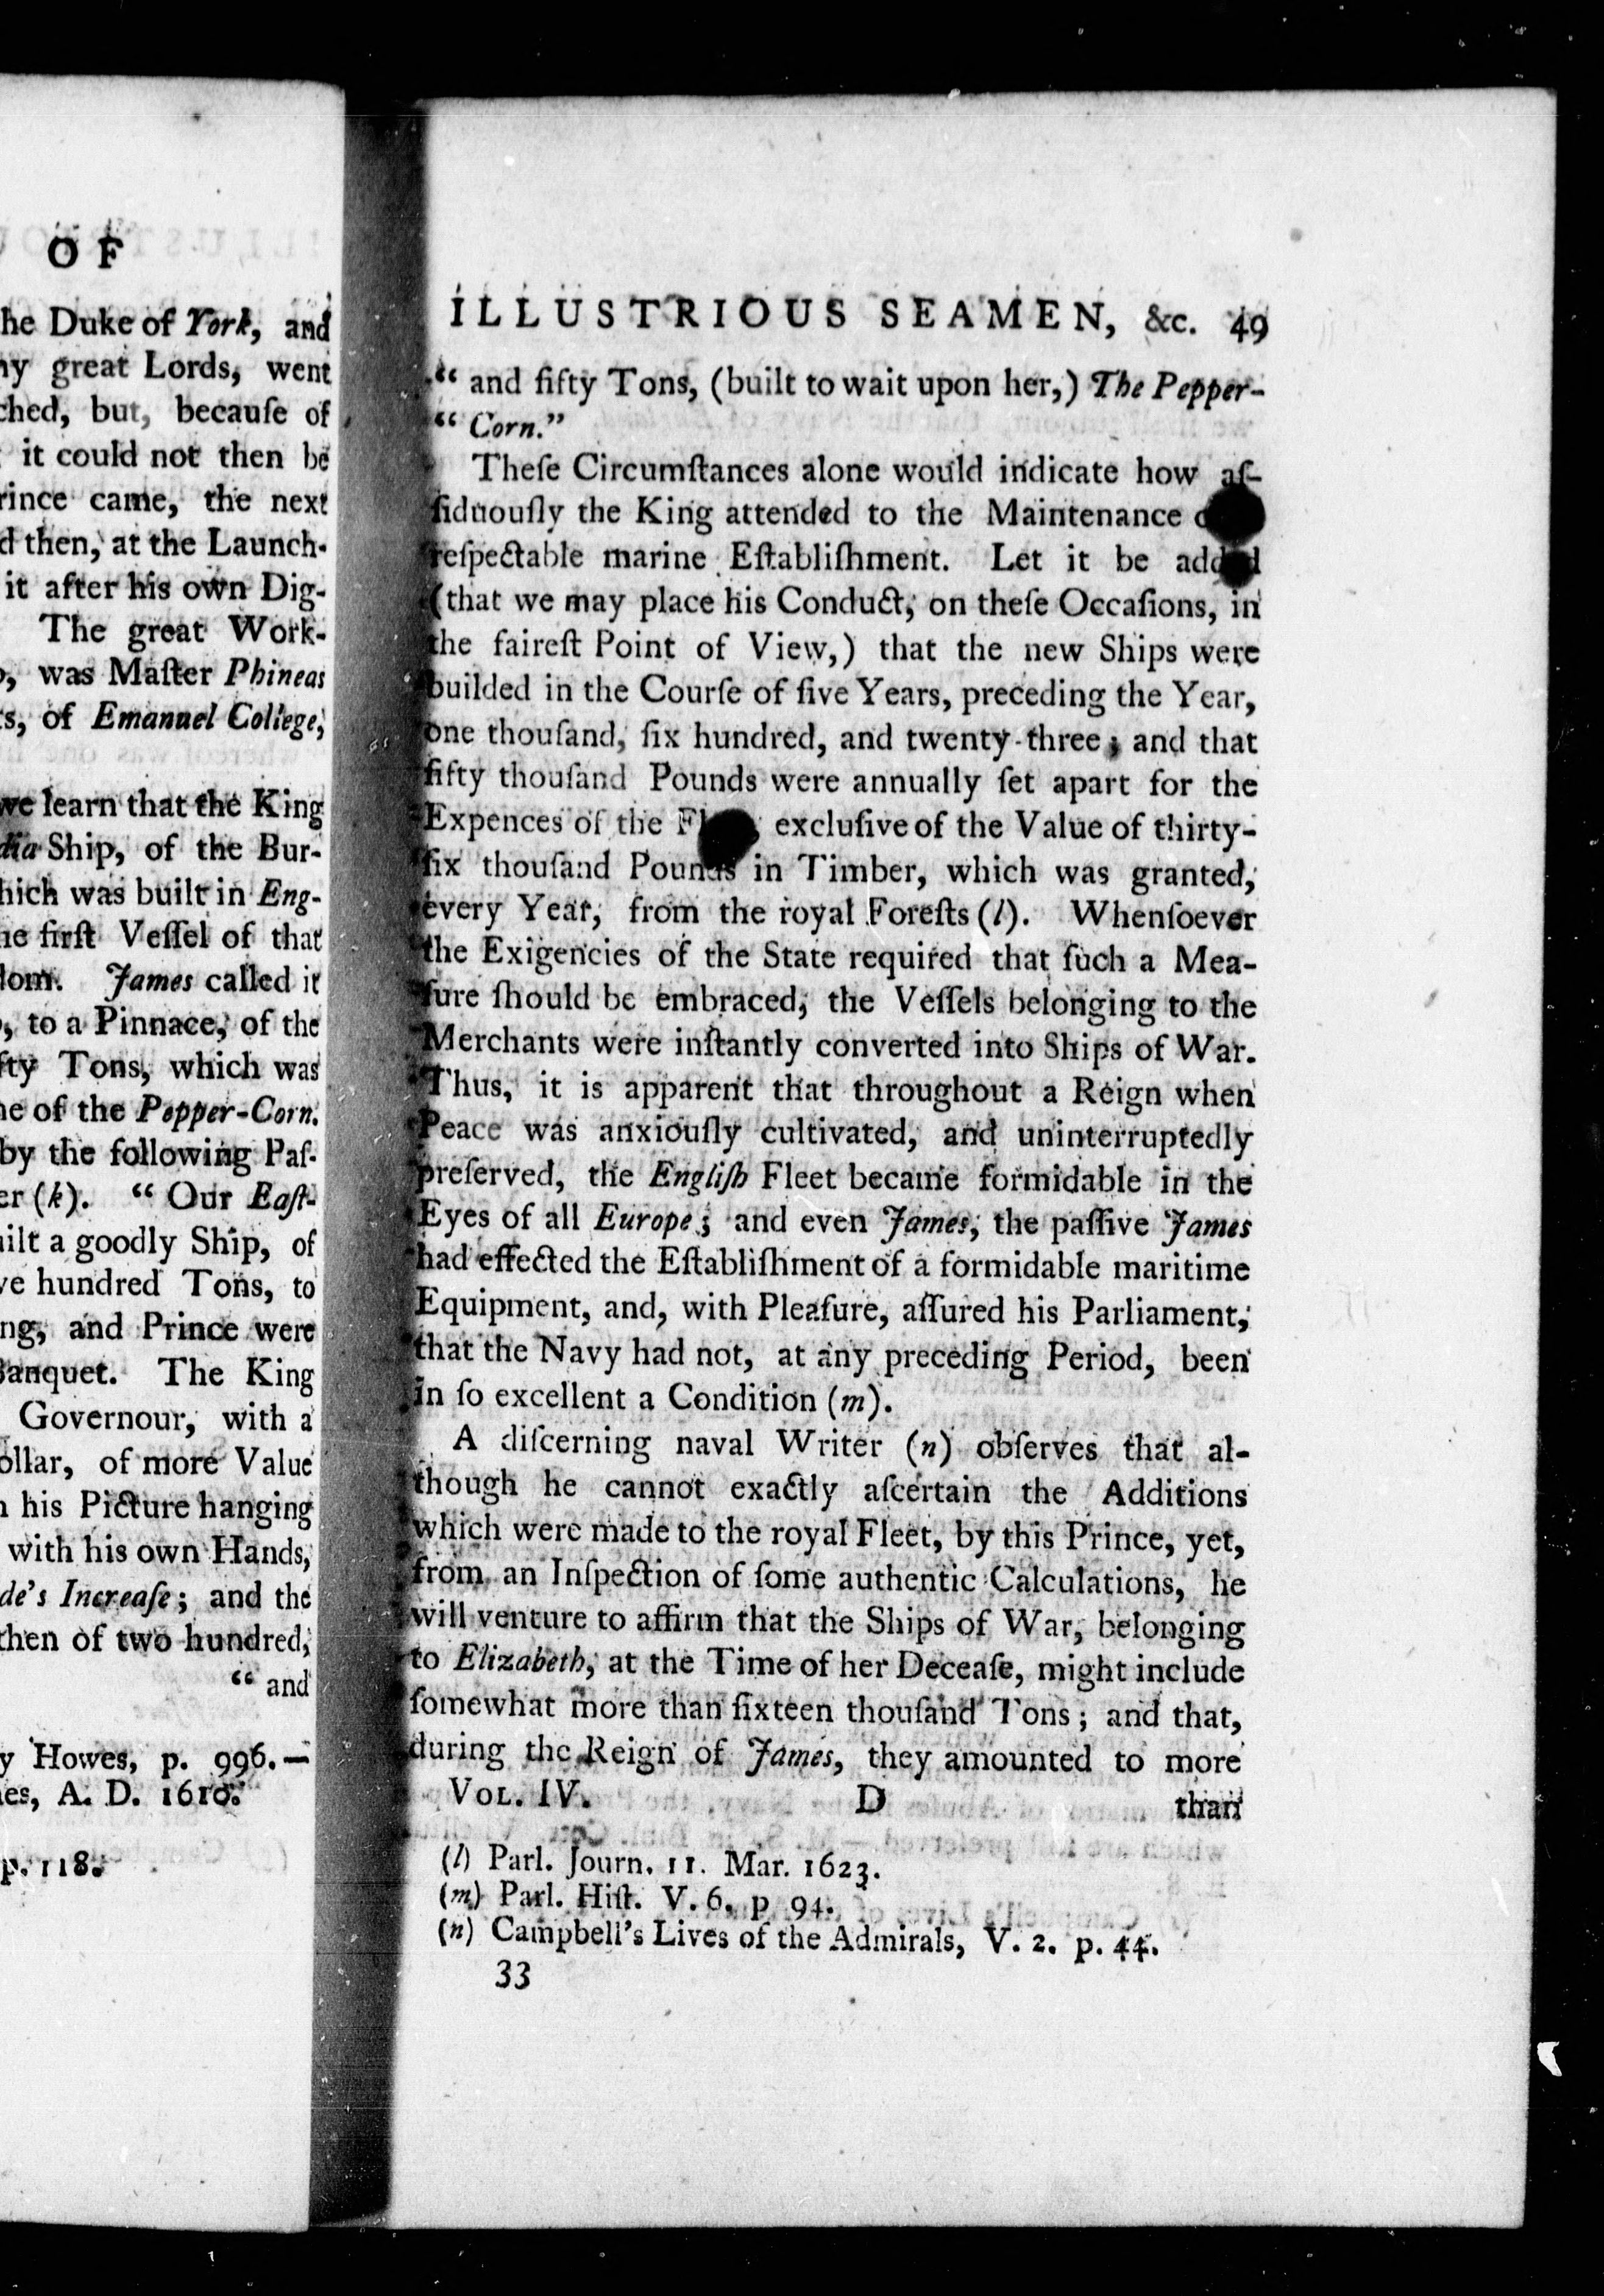 OF
he Duke of York, and
great Lords, went
but, becauſe of
it could not then be
came, the next
then, at the Launch-
it after his own Dig-
The great Work-
was Maſter Phineas
of Emanuel College,
we learn that the King
Ship, of the Bur-
which was built in Eng-
firſt Veſſel of that
James called it
to a Pinnace, of the
Tons, which was
of the Pepper-Corn.
by the following Paſ-
(k). “ Our Eaſt-
a goodly Ship, of
hundred Tons, to
and Prince were
Banquet. The King
Governour, with a
of more Value
his Picture hanging
with his own Hands,
Increaſe; and the
then of two hundred,
“ and
Howes, p. 996.—
A. D. 1610.
p. 118.
ILLUSTRIOUS SEAMEN, &c. 49
“ and fifty Tons, (built to wait upon her,) The Pepper-
“ Corn.”
Theſe Circumſtances alone would indicate how aſ-
ſiduouſly the King attended to the Maintenance
reſpectable marine Eſtabliſhment. Let it be added
(that we may place his Conduct, on theſe Occaſions, in
the faireſt Point of View,) that the new Ships were
builded in the Courſe of five Years, preceding the Year,
one thouſand, ſix hundred, and twenty-three; and that
fifty thouſand Pounds were annually ſet apart for the
Expences of the excluſive of the Value of thirty-
ſix thouſand Pounds in Timber, which was granted,
every Year, from the royal Foreſts (l). Whenſoever
the Exigencies of the State required that ſuch a Mea-
ſure ſhould be embraced, the Veſſels belonging to the
Merchants were inſtantly converted into Ships of War.
Thus, it is apparent that throughout a Reign when
Peace was anxiouſly cultivated, and uninterruptedly
preſerved, the Engliſh Fleet became formidable in the
Eyes of all Europe; and even James, the paſſive James
had effected the Eſtabliſhment of a formidable maritime
Equipment, and, with Pleaſure, aſſured his Parliament,
that the Navy had not, at any preceding Period, been
in ſo excellent a Condition (m).
A diſcerning naval Writer (n) obſerves that al-
though he cannot exactly aſcertain the Additions
which were made to the royal Fleet, by this Prince, yet,
from an Inſpection of ſome authentic Calculations, he
will venture to affirm that the Ships of War, belonging
to Elizabeth, at the Time of her Deceaſe, might include
ſomewhat more than ſixteen thouſand Tons; and that,
during the Reign of James, they amounted to more
VOL. IV. D than
(l) Parl. Journ. 11. Mar. 1623.
(m) Parl. Hiſt. V. 6. p. 94.
(n) Campbell's Lives of the Admirals, V. 2. p. 44.
33